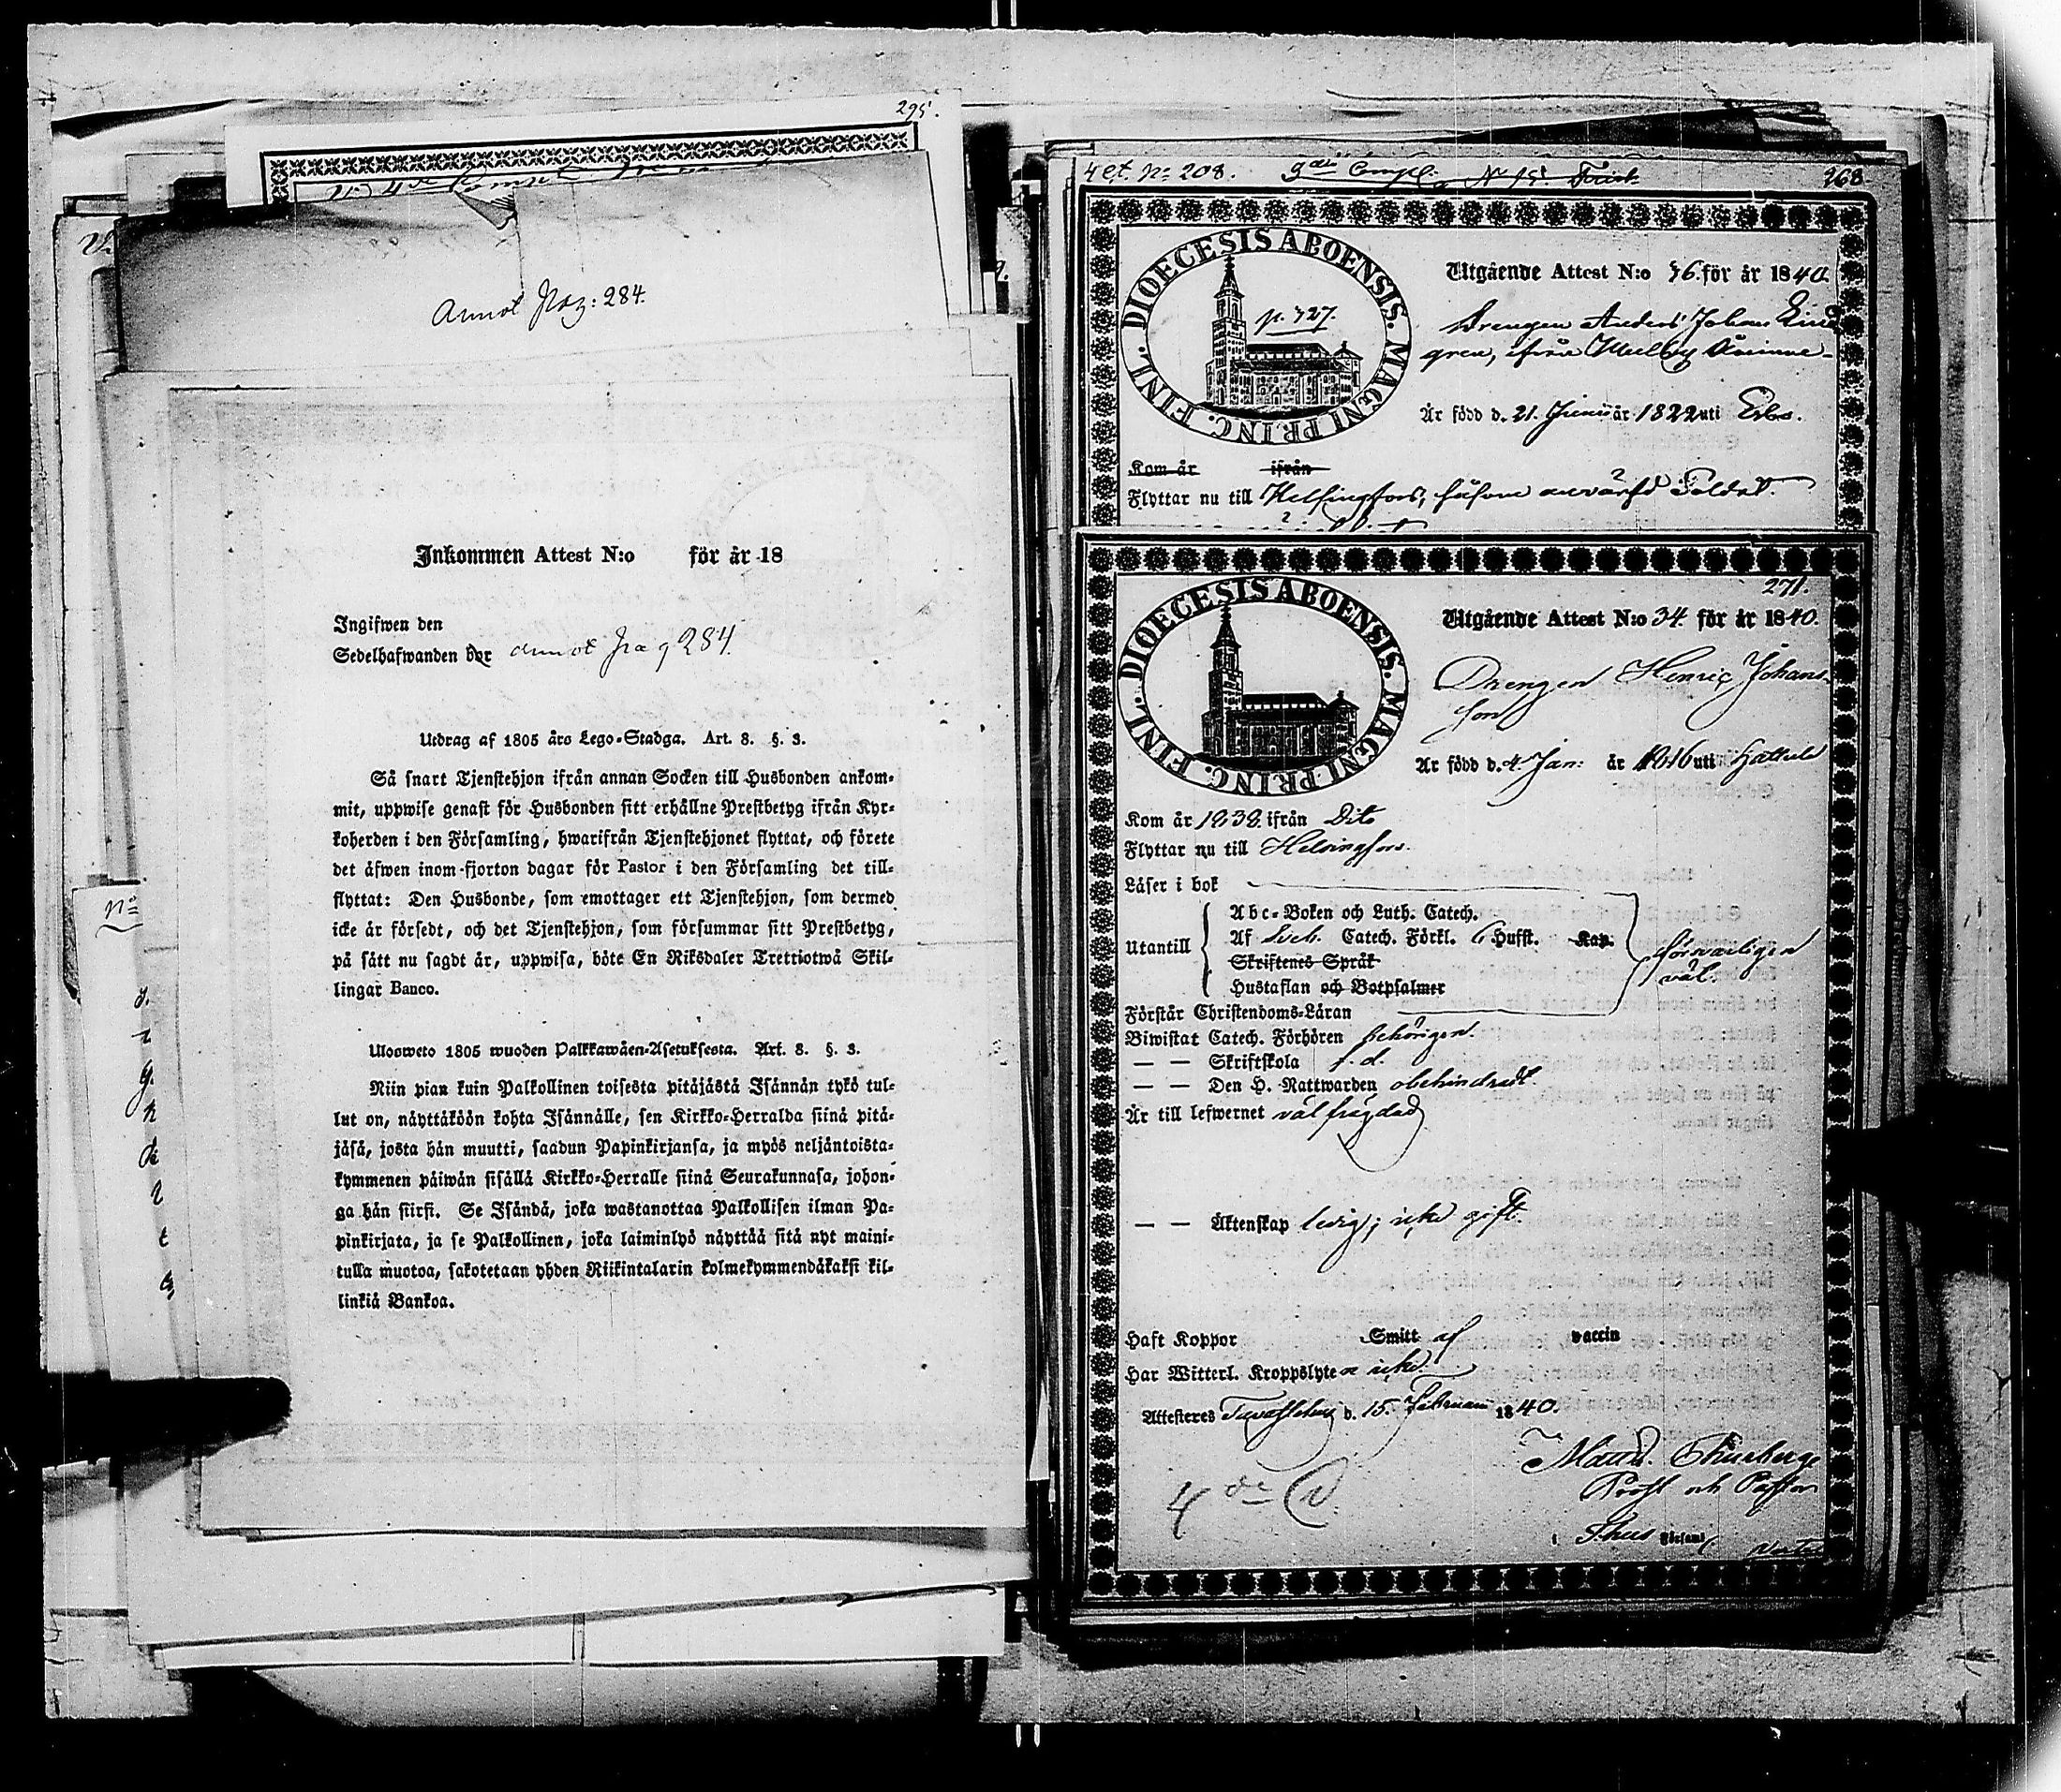 295.
Annot Pag: 284.
Inkommen Attest N:o för år 18
Ingifwen den
Sedelhafwanden bor annot pag 284.
Utdrag af 1805 års Lego-Stadga. Art. 8. §. 3.
Så snart Tjenstehjon ifrån annan Socken till Husbonden ankom-
mit, uppwise genast för Husbonden sitt erhållne Prestbetyg ifrån Kyr-
koherden i den Församling, hwarifrån Tjenstehjonet flyttat, och förete
det äfwen inom fjorton dagar för Pastor i den Församling det till-
flyttat: Den Husbonde, som emottager ett Tjenstehjon, som dermed
icke är försedt, och det Tjenstehjon, som försummar sitt Prestbetyg,
på sätt nu sagdt är, uppwisa, böte En Riksdaler Trettiotwå Skil-
lingar Banco.
Uloswеto 1805 wuoden Palkkawäen-Asetuksesta. Art. 8. §. 3.
Niin pian kuin Palkollinen toisesta pitäjästä Isännän tykö tul-
lut on, näyttäköön kohta Isännälle, sen Kirkko-Herralda siinä pitä-
jäsä, josta hän muutti, saadun Papinkirjansa, ja myös neljäntoista-
kymmenen päiwän sisällä Kirkko-Herralle siinä Seurakunnasa, johon-
ga hän siirsi. Se Isändä, joka wastanottaa Palkollisen ilman Pa-
pinkirjata, ja se Palkollinen, joka laiminlyö näyttää sitä nyt maini-
tulla muotoa, sakotetaan yhden Riikintalarin kolmekymmendäkaksi kil-
linkiä Bankoa.
No
4 et. No 208. 3die Compl. No 15. 268
DIOECESIS ABOENSIS. MAGNI PRINC. FINL.
p. 727.
Utgående Attest N:o 76. för år 1840.
Drengen Anders Johan Lind
gren, ifrån
År född d. 21. Junii år 1822 uti
Kom år ifrån
Flyttar nu till Helsingfors, såsom anvärfd Soldat.
271.
DIOECESIS ABOENSIS. MAGNI PRINC. FINL.
Utgående Attest N:o 34. för år 1840.
Drengen Henric Johans-
son
Är född d. 4 Jan: år 1816 uti Hattula
Kom år 1838. ifrån Dito
Flyttar nu till Helsingfors.
Läser i bok
Utantill
Abc-Boken och Luth. Catech.
Af Catech. Förkl. 6 Hufst. Kap.
Skriftenes Språk
Hustaflan och Botpsalmer
försvarligen
väl.
Förstår Christendoms-Läran
Biwistat Catech. Förhören behörigen.
— — Skriftskola s. d.
— — Den H. Nattwarden obehindradt.
Är till lefwernet välfrägdad
— — Äktenskap ledig; icke gift.
Haft Koppor Smitt af vaccin
Har Witterl. Kroppslyte icke.
Attesteres Tavastehus d. 15. Februarii 1840.
Prost och Pastor
i Församl
Verte
4de C